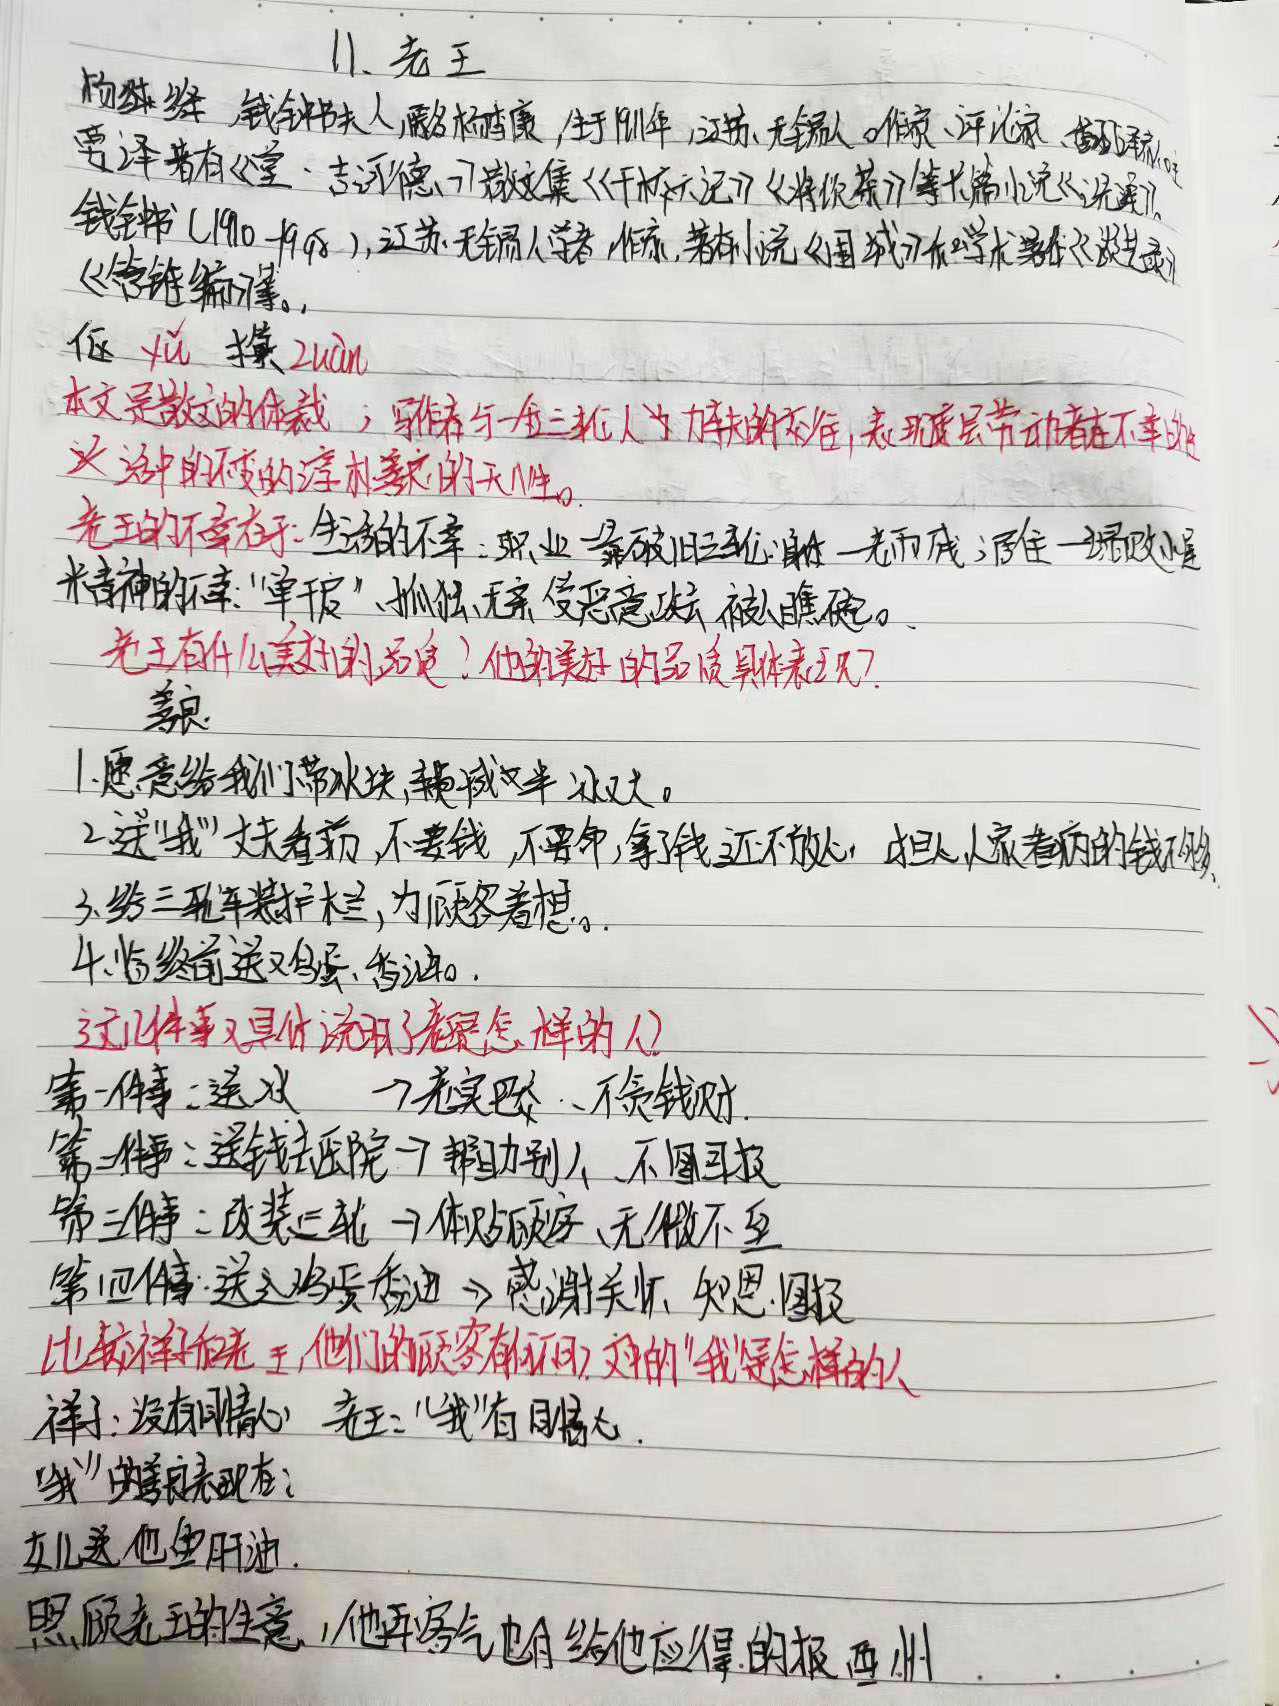 11、老王
杨绛 钱钟书夫人,原名杨季康,生于1911年,江苏无锡人。作家、评论家、翻译家。主
要译著有《堂·吉诃德》散文集《干校六记》《将饮茶》等长篇小说《洗澡》。
钱钟书(1910-1998),江苏无锡人学者 作家,著有小说《围城》和学术著作《谈艺录》
《管锥编》等。
伛 yǔ 攥 zuàn
本文是散文的体裁;写作者与一位三轮人力车夫的交往,表现底层劳动者在不幸的生
活中的不变的淳朴善良的天性。
老王的不幸在于:生活的不幸:职业一靠破旧三轮 身体一老而残;居住一塌败小屋
精神的不幸:“单干户”、孤独、无亲 受恶意攻击 被人瞧破。
老王有什么美好的品质?他的美好的品质具体表现?
善良
1.愿意给我们带冰块,车费减半 冰又大。
2.送“我”丈夫看病,不要钱,不要命,拿了钱还不放心,担心人家看病的钱不够、
3、给三轮车装护栏,为顾客着想。
4、临终前送鸡蛋、香油。
这几件事又具体说明了老王是怎样的人?
第一件事:送冰 → 老实巴交、不贪钱财.
第二件事:送钱去医院→帮助别人、不图回报
第三件事:改装三轮→体贴顾客、无微不至
第四件事:送鸡蛋香油→感谢关怀、知恩图报
比较祥子和老王,他们的顾客有何不同?文中的“我”是怎样的人
祥子:没有同情心 老王:“我”有同情心.
“我”的善良表现在:
女儿送他鱼肝油.
照顾老王的生意,他再客气也给他应得的报酬